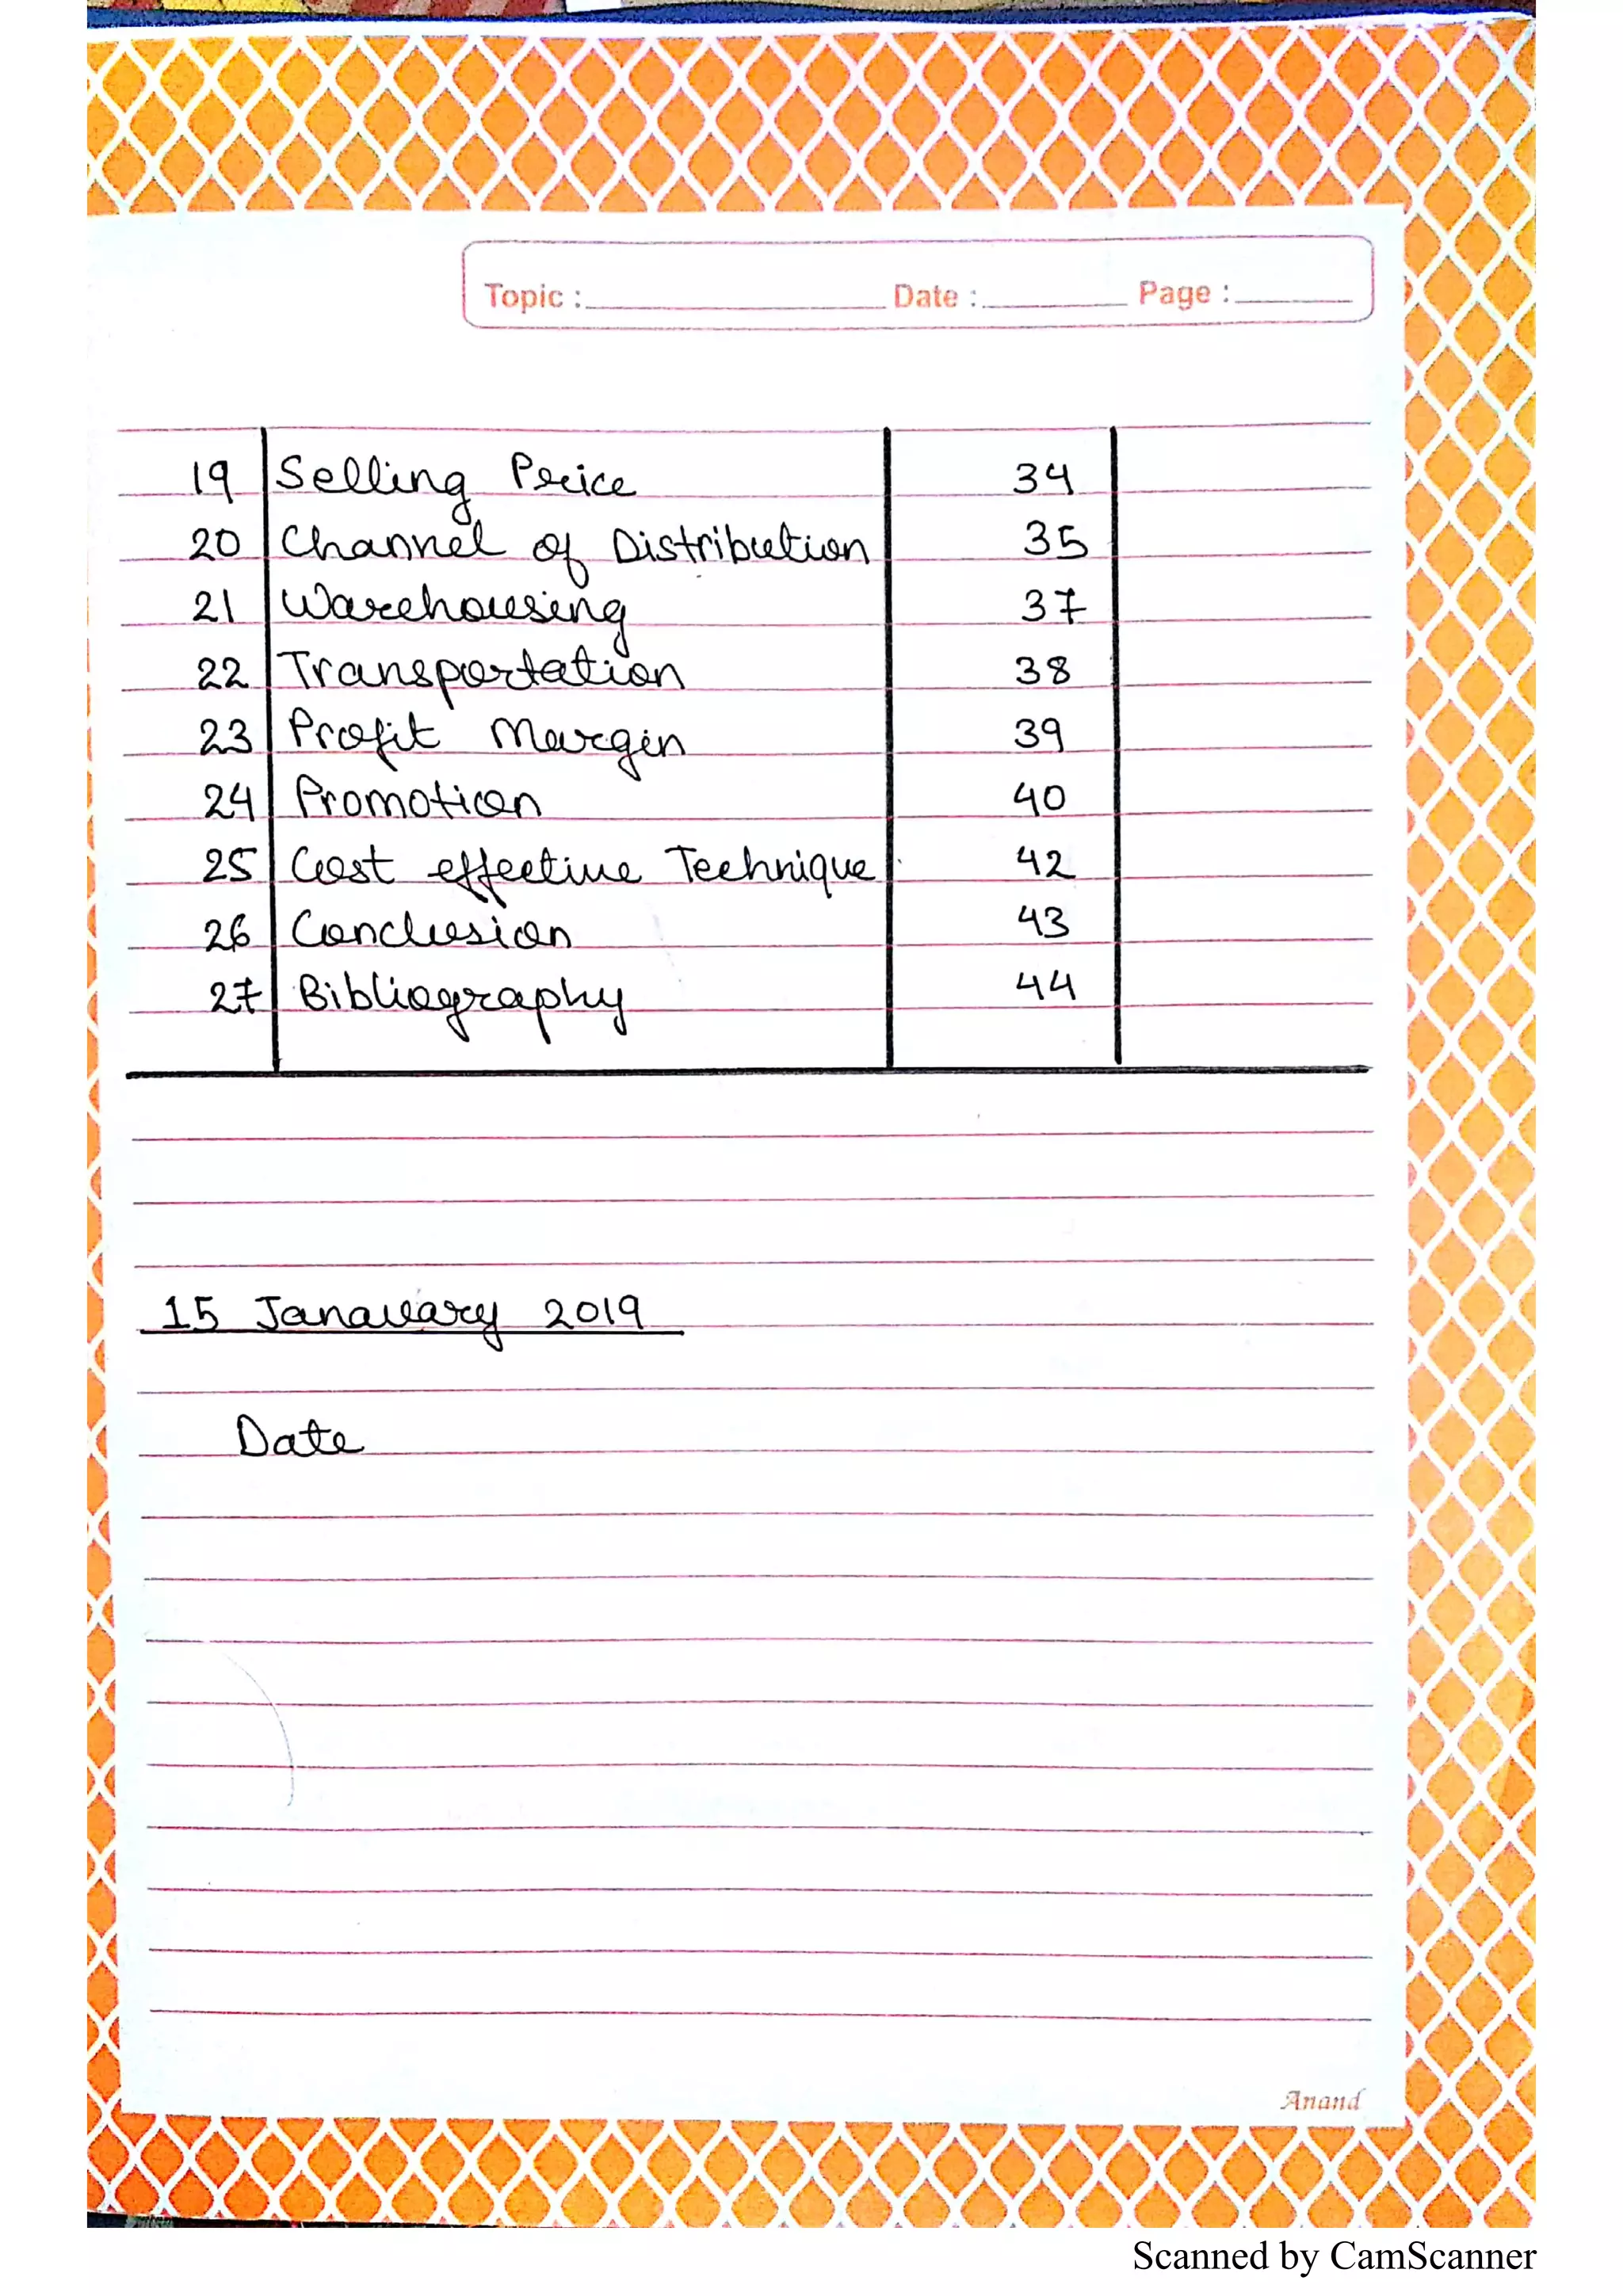 Topic : Date : Page :
19 Selling Price 34
20 Channel of Distribution 35
21 Warehousing 37
22 Transportation 38
23 Profit Margin 39
24 Promotion 40
25 Cost effective Technique 42
26 Conclusion 43
27 Bibliography 44
15 Janauary 2019
Date
Anand
Scanned by CamScanner